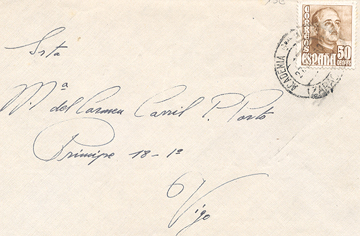 Srta
Mª del Carmen Carril P. Porto
Principe 18-1º
Vigo
CORREOS
ESPAÑA
50
ACADEMIA